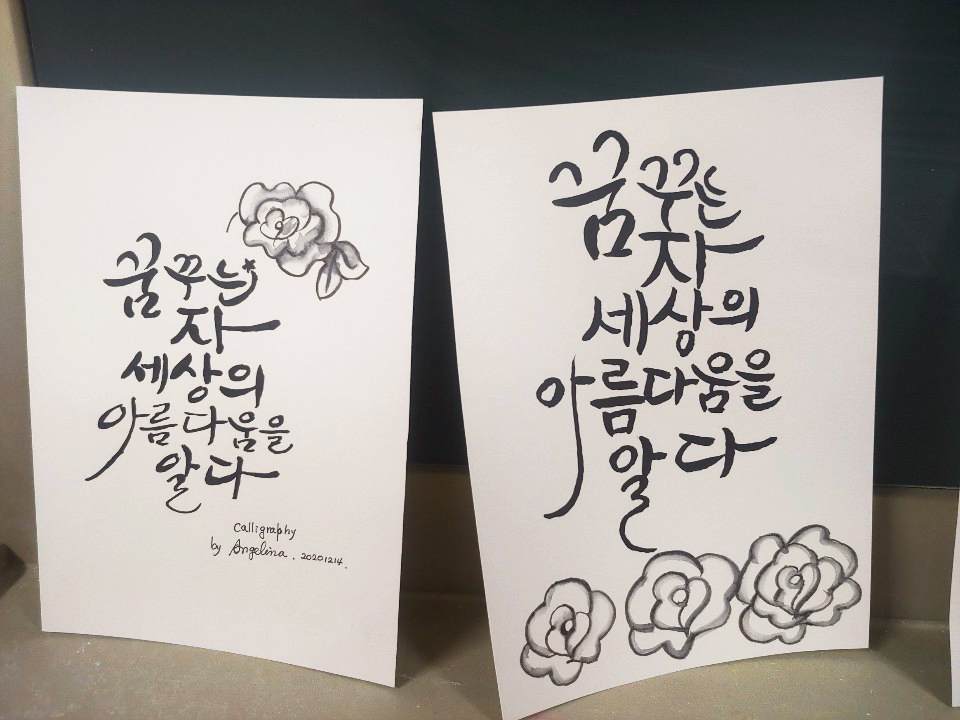 꿈꾸는
자
세상의
아름다움을
알다
Calligraphy
by Angelina. 20201214.
꿈꾸는
자
세상의
아름다움을
알다